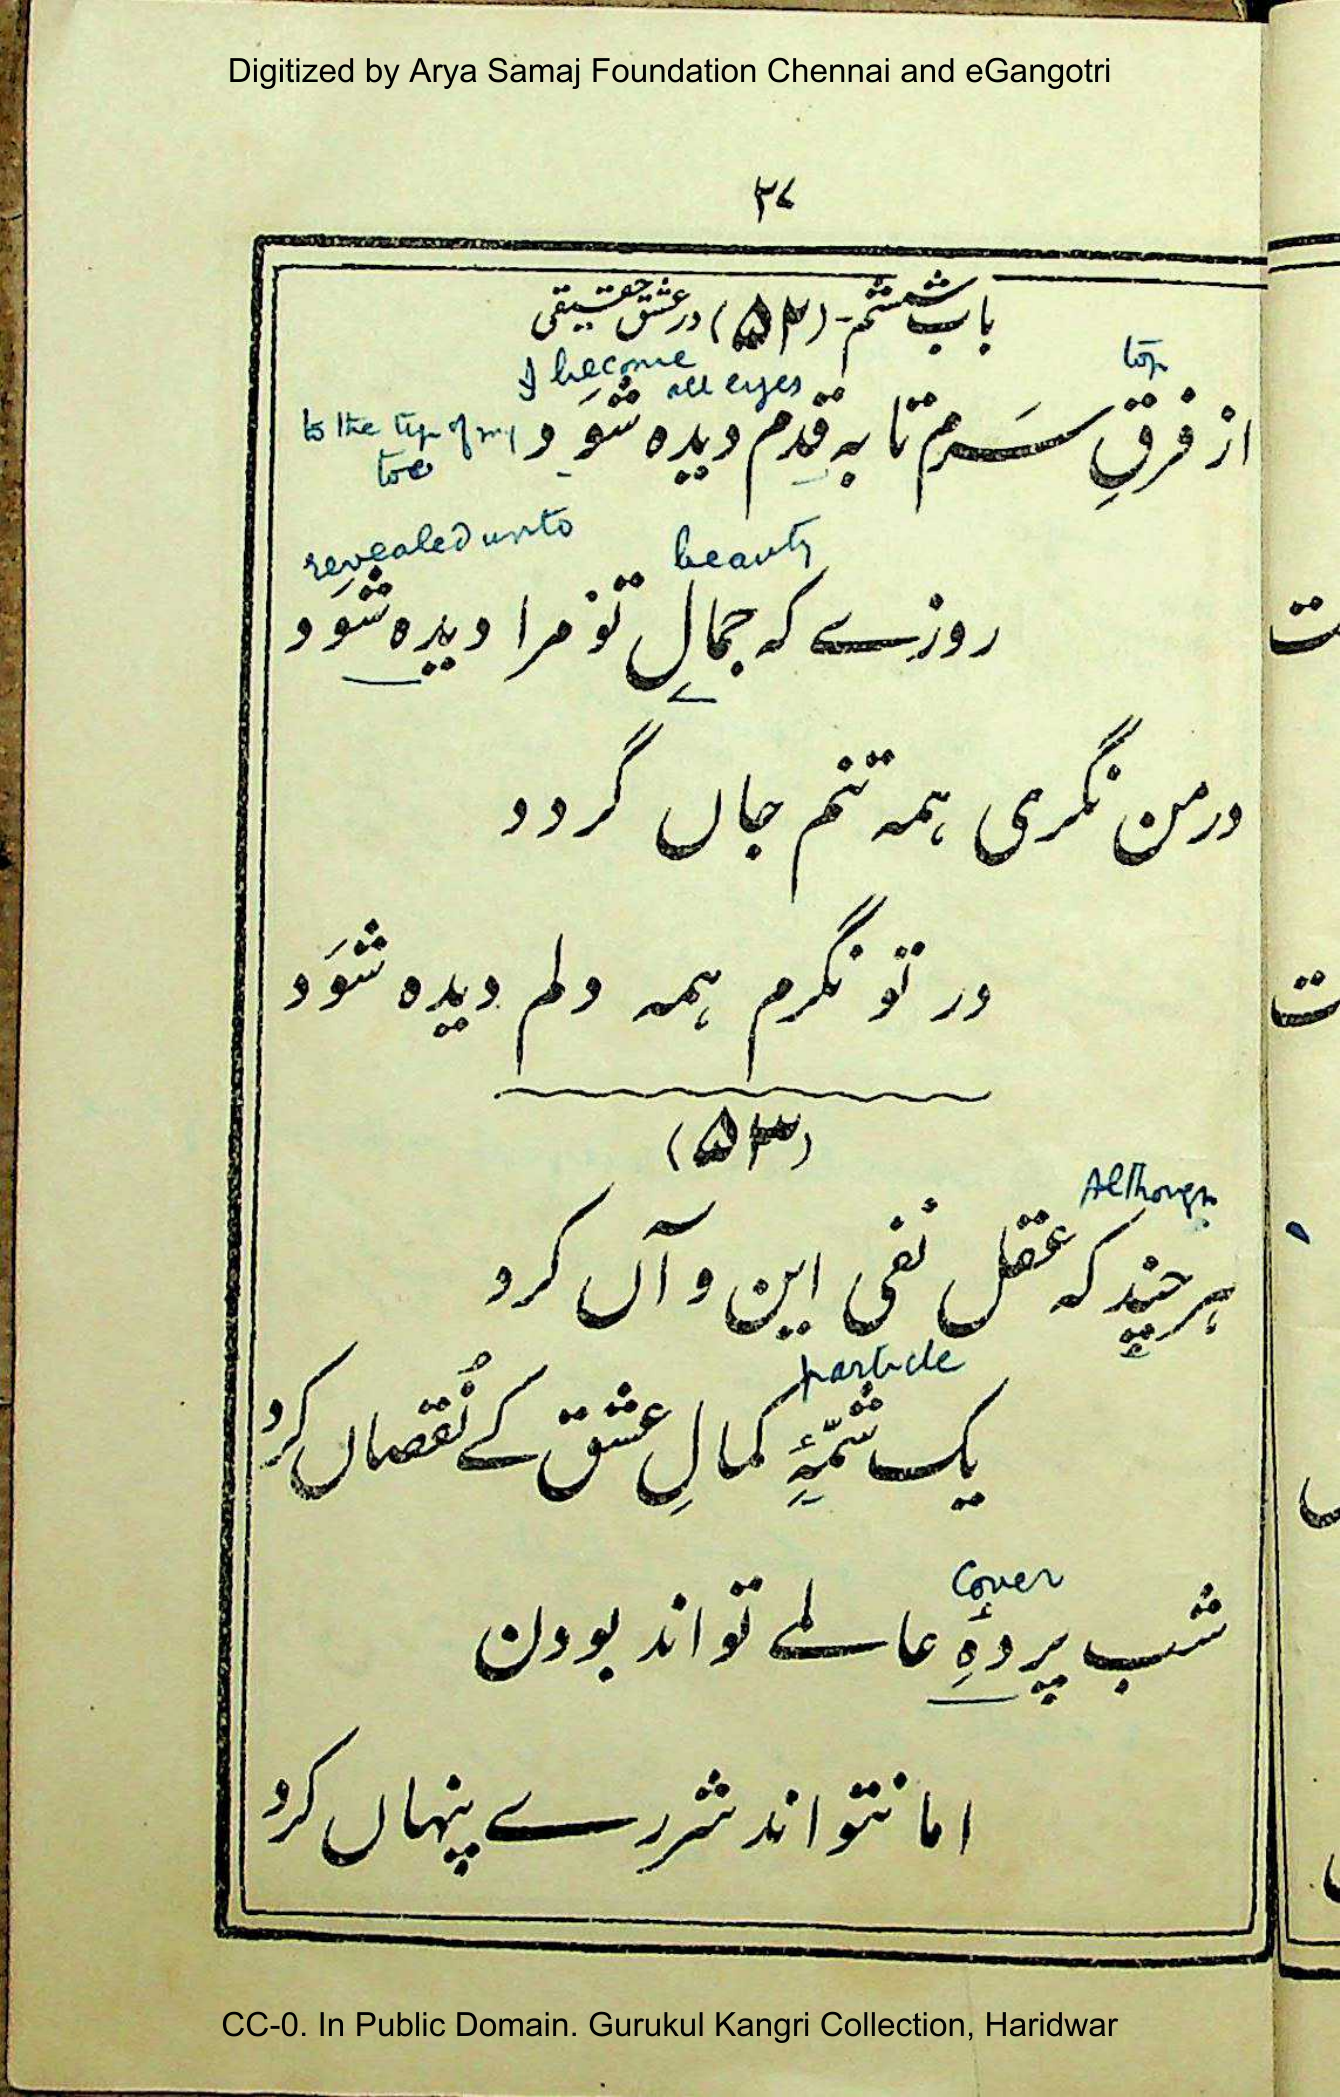 Digitized by Arya Samaj Foundation Chennai and eGangotri
۳۷
باب ششم - (۵۲) در عشق حقیقی
I become all eyes
top
از فرقِ سَرم تا به قدم دیده شَوَد
to the tip of my toe
revealed unto
beauty
روزے که جمالِ تو مرا دیده شَوَد
در من نگری ہمه تنم جاں گردد
در تو نگرم ہمه دلم دیده شَوَد
(۵۳)
Although
ہرچند که عقل نفی این و آں کرد
particle
یک شمّۂِ کمالِ عشق کے نُقصاں کرد
cover
شب پردۂِ عالمے تواند بودن
اما نتواند شررے پنہاں کرد
CC-0. In Public Domain. Gurukul Kangri Collection, Haridwar